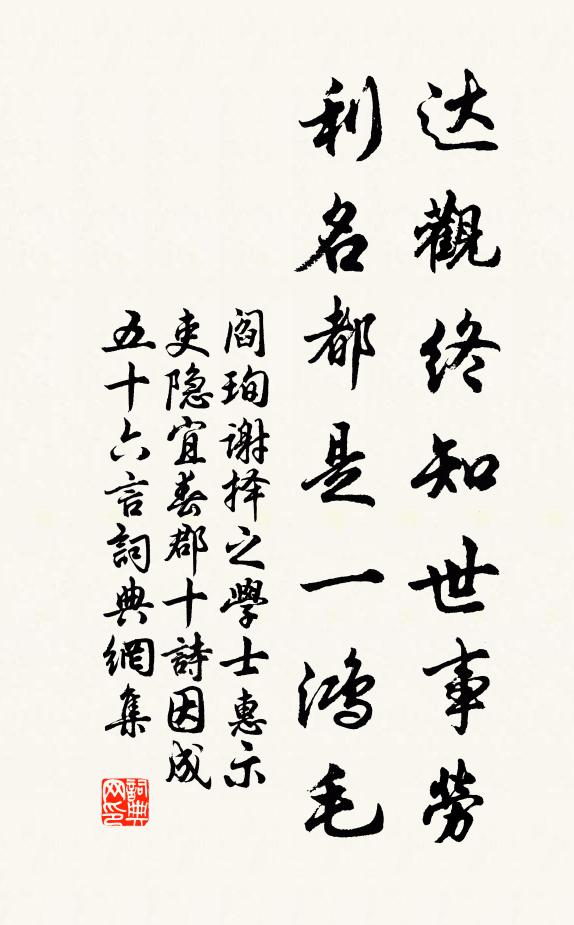 达觀终知世事勞
利名都是一鸿毛
阎珣谢择之學士惠示
吏隐宜春郡十詩因成
五十六言詞典網集
詞典网印